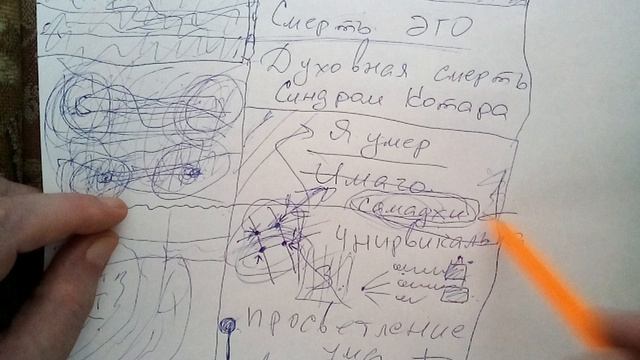 Смерть эго
Духовная смерть
Синдром Котара
Я умер
Имаго
самадхи
Чнирвикаль
Просветление